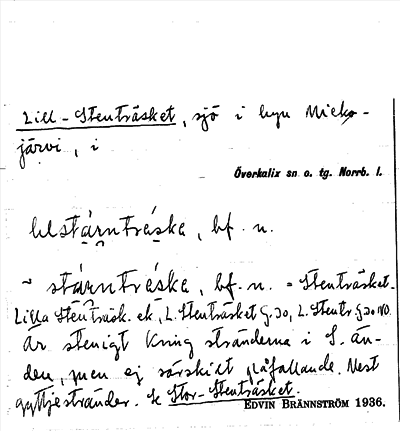 Lill-Stenträsket, sjö i byn Miekojärvi, i
Överkalix sn o. tg. Norrb. l.
lılstärnträska, bf. n.
~ stärnträska, bf. n. = Stenträsket.
Lilla Stenträsk. ek, L. Stenträsket G. 30, L. Stentr G 30 NO.
Är stenigt kring stränderna i S. än-
den, men ej särskildt påfallande. Mest
gyttjestränder. Se Stor-Stenträsket.
EDVIN BRÄNNSTRÖM 1936.